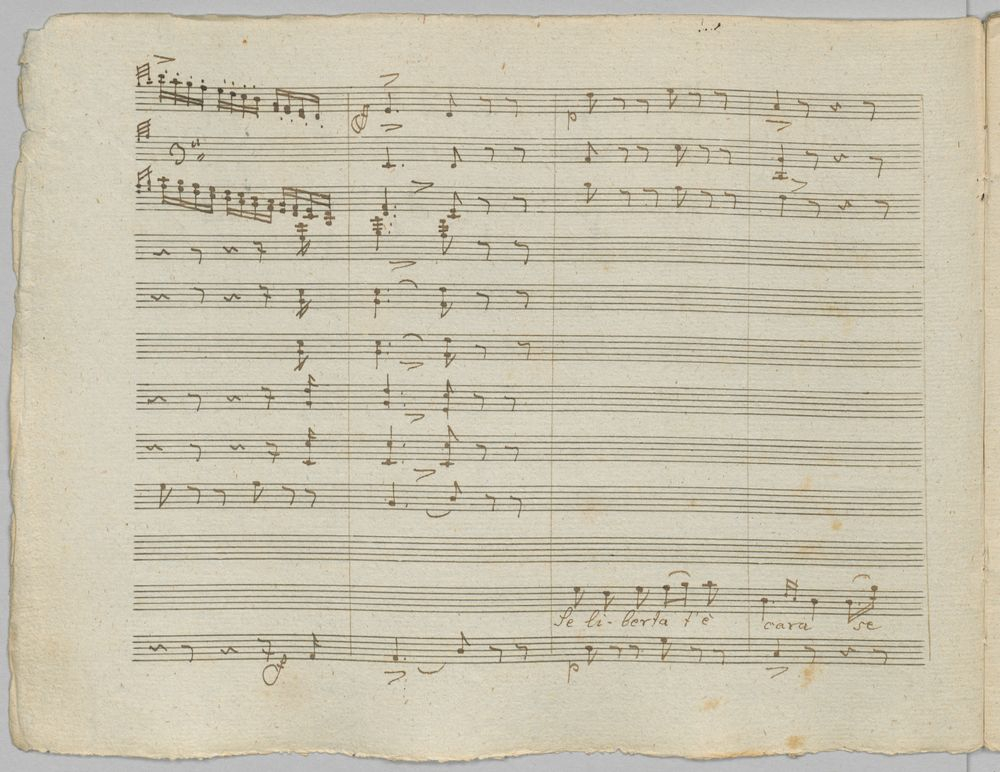 p
Se li - berta t'è cara se
p